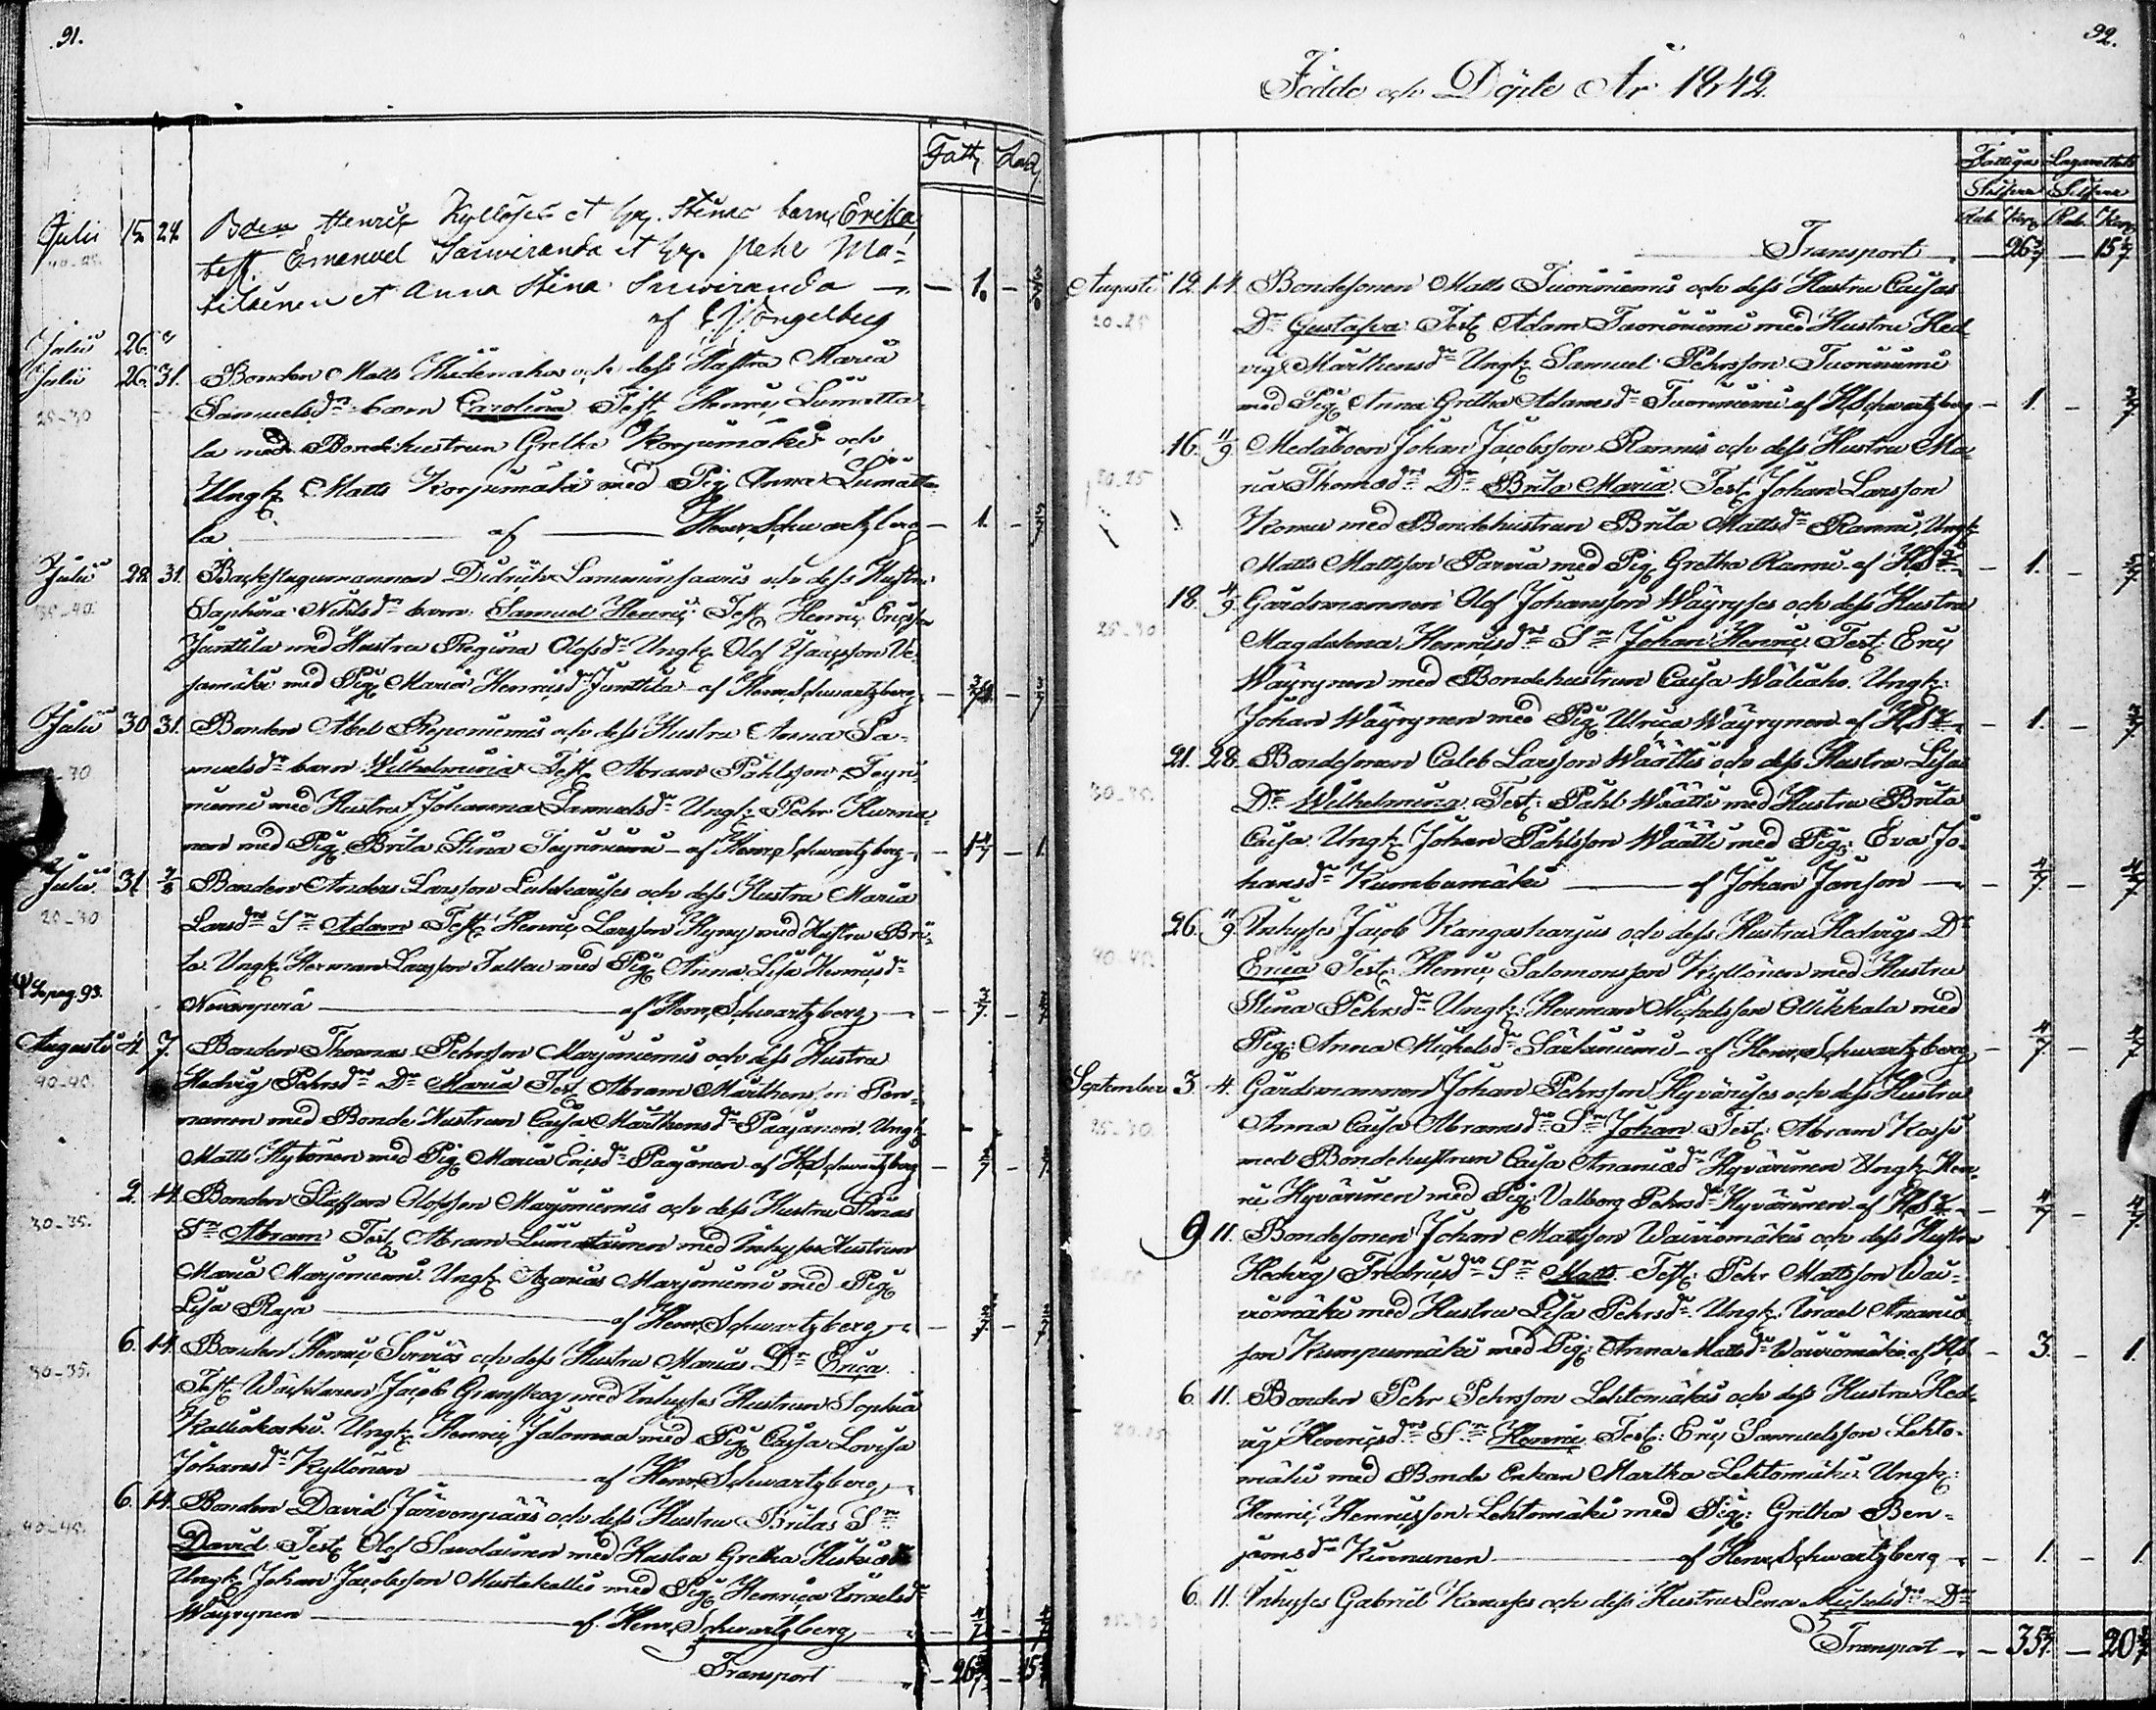 91.
Fatt. Laz.
Julii 15 24 Bden Henric Kyllöses et Hr. Stinas barn Erika
40-45. test. Emanuel Sarwiranda et Hr. Pehr Ma-
tilainen et Anna Stina Surwiranda — 1.
af Engelberg
Julii 26.
Julii 26. 31. Bonden Matts Hiidenahos och dess Hustru Maria
25-30 Samuelsdrs barn Carolina Test. Henric Lumetta-
la med Bondehustrun Gretha Korjumäki och
Ungk. Matts Korjumäki med Pig. Anna Lumätta-
la — af — Henr. Schwartzberg — 1. — 2/7
Julii 29. 31. Backstugumannen Didrich Lammiinsaaris och dess Hustru
35-40. Saphira Nihlsdrs barn Samuel Henric Test. Henric Ericsson
Junttila med Hustru Regina Olofsdr Ungk. Olof
samäki med Pig. Maria Henricsdr Junttila af Henr. Schwartzberg
Julii 30 31. Bonden Abel Reponiemis och dess Hustru Anna Sa-
muelsdrs barn Wilhelmina Test. Abram Påhlsson Teyri-
niemi med Hustru Johanna Samuelsdr Ungk. Pehr Hurna-
nen med Pig. Brita Stina Teyriniemi — af Henr. Schwartzberg — 1.
Julii 31. 7/8 Bonden Anders Larsson Luhtaruses och dess Hustru Maria
20-30 Larsdrs Sn Adam Test. Henric Larsson Hyry med Hustru Bri-
ta. Ungk. Herman Larsson Tallen med Pig. Anna Lisa Henricsdr
Se pag. 93. Nevanperä — af Henr. Schwartzberg — 2/7
Augusti 4. 7. Bonden Thomas Pehrsson Marjoniemis och dess Hustru
40-45. Hedvig Pehrsdrs Dr Maria Test. Abram Mårthensson Pen-
nanen med Bonde Hustrun Caisa Mårthensdr Paajanen. Ungk.
Matts Hytönen med Pig. Maria Ericsdr Paajanen af H. Schwartzberg — 2/7 — 2/7
2. 14. Bonden Staffan Olofsson Marjoniemis och dess Hustru Stinas
30-35. Sn Abram Test. Abram Lumatainen med Inhyses Hustrun
Maria Marjoniemi. Ungk. Azarias Marjoniemi med Pig.
Lisa Raja — af Henr. Schwartzberg — 2/7 — 2/7
6. 14. Bonden Henric Surviös och dess Hustru Marias Dr Erica.
30-35. Test. Jacob Granskog med Inhyses Hustrun Sophia
Kalliokoski. Ungk. Henric Jalonna med Pig. Caisa Lovisa
Johansdr Kyllönen — af Henr. Schwartzberg
6. 14. Bonden David Järvenpääs och dess Hustru Britas Sn
40-45. David. Test. Olof Savolainen med Hustru Gretha
Ungk. Johan Jacobsson Mustakallio med Pig. Henrica Israelsdr
Wäyrynen — af Henr. Schwartzberg — 4/7
Transport — 26 — 15
92.
Födde och Döpte År 1842.
Fattigas Lazarettets
Silfver Silfver
Rub. Kop. Rub. Kop.
Transport — 26 — 15
Augusti 12. 14. Bondesonen Matts Tuoriniemis och dess Hustru Caisas
20-25 Dr Gustafva Test. Adam Tuoriniemi med Hustru Hed-
vig Mårthensdr Ungk. Samuel Pehrsson Tuoriniemi
med Pig. Anna Gretha Adamsdr Tuoriniemi af H. Schwartzberg — 1. — 2/7
16. 11/9 Medåboen Johan Jacobsson Rannis och dess Hustru Ma-
20-25 ria Thomsdrs Dr Brita Maria. Test. Johan Larsson
Komu med Bondehustrun Brita Mattsdr Ranni, Ungk.
Matts Mattsson Parvia med Pig. Gretha Ranni. af H. S. — 1. —
18. 4/9 Gårdsmannen Olof Johansson Wäyryses och dess Hustru
25-30 Magdalena Henricsdrs Sn Johan Henric Test. Eric
Wäyrynen med Bondehustrun Caisa Wäliaho. Ungk:
Johan Wäyrynen med Pig. Ulrica Wäyrynen af H. S. — 1. —
21. 28. Bondesonen Caleb Larsson Wäättis och dess Hustru Lisas
30-35. Dr Wilhelmina. Test: Påhl Wäätti med Hustru Brita
Caisa. Ungk. Johan Påhlsson Wäätti med Pig: Eva Jo-
hansdr Kumbumäki — af Johan Janson — 4/7 — 4/7
26. 11/9. Inhyses Jacob Kangasharjus och dess Hustru Hedvigs Dr
40-45. Erica Test: Henric Salomonsson Kyllönen med Hustru
Stina Pehrsdr Ungk: Herman Michelsson Ollikkala med
Pig: Anna Michelsdr Särkiniemi — af Henr. Schwartzberg — 4/7. — 4/7
September 3. 4. Gårdsmannen Johan Pehrsson Hyvärises och dess Hustru
25-30. Anna Caisa Abramsdrs Sn Johan. Test: Abram Kassu
med Bondehustrun Caisa Ananiædr Hyvärinen Ungk. Hen-
ric Hyvärinen med Pig: Valborg Pehrsdr Hyvärinen af H. S. — 4/7 — 4/7
9 11. Bondesonen Johan Mattsson Waiviomäkis och dess Hustru
Hedvig Fredricsdrs Sn Matts. Test: Pehr Mattsson Wai-
viomäki med Hustru Lisa Pehrsdr Ungk. Israel Ananiæ-
son Kumpumäki med Pig: Anna Mattsdr Waiviomäki. af H. S. — 3. — 1.
6. 11. Bonden Pehr Pehrsson Lehtomäkis och dess Hustru Hed-
20-25 vig Henricsdrs Sn Henric Test: Eric Samuelsson Lehto-
mäki med Bonde Enkan Martha Lehtomäki. Ungk:
Henric Henricsson Lehtomäki med Pig: Gretha Ben-
jamsdr Kinnunen — af Henr. Schwartzberg — 1. — 1
6. 11. Inhyses Gabriel Kanases och dess Hustru Lena Michelsdrs Dr
Transport — 35 — 20